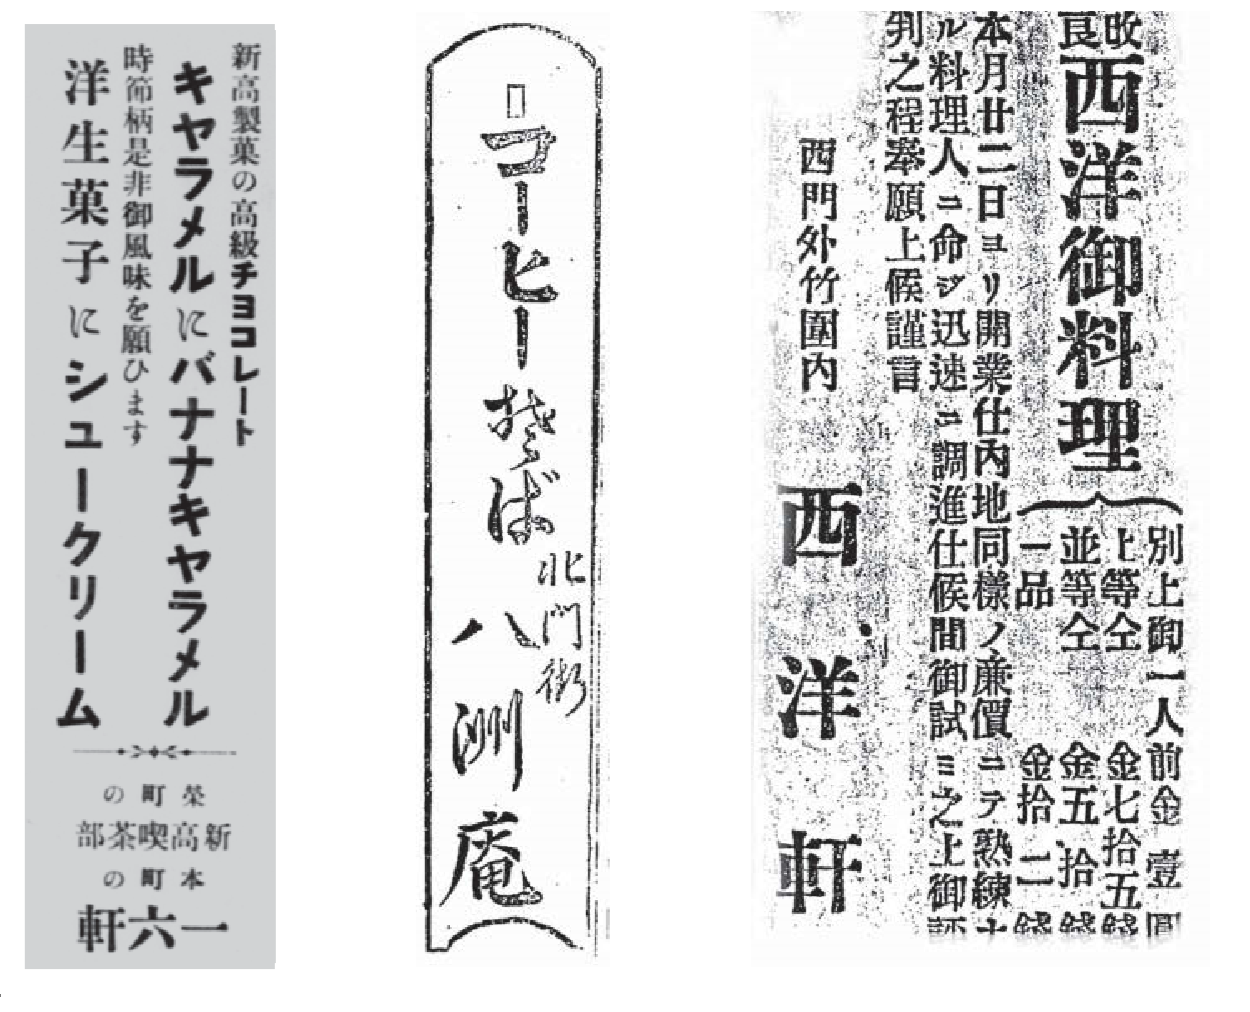 新高製菓の高級チヨコレート
キヤラメルにバナナキヤラメル
時節柄是非御風味を願ひます
洋生菓子にシュークリーム
榮町の
新高喫茶部
本町の
一六軒
コーヒー
おそば
北門街
八洲庵
西洋御料理
別上御一人前金壹圓
上等仝 金七拾五錢
並等仝 金五拾錢
一品 金拾二錢
本月廿二日ヨリ開業仕内地同樣ノ廉價ニテ熟練ナ
ル料理人ニ命ジ迅速ニ調進仕候間御試ミ之上御評
判之程奉願上候謹言
西門外竹圍内
西洋軒